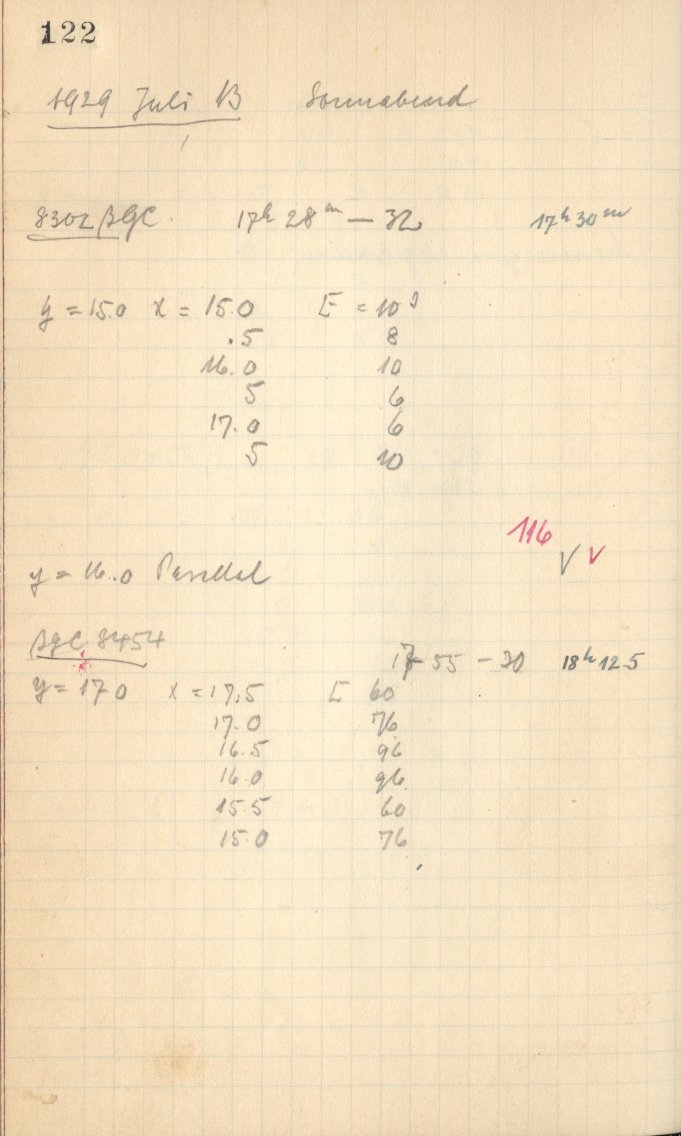 122
1929 Juli 13 Sonnabend
8302 βGC. 17h 28m — 32 17h 30m
y = 15.0 x = 15.0 E = 10s
.5 8
16.0 10
5 6
17.0 6
5 10
116
V V
y = 16.0 Parallel
βGC 8454
17 55 – 30 18h 12.5
y = 17.0 x = 17.5 E 60
17.0 76
16.5 96
16.0 96
15.5 60
15.0 76